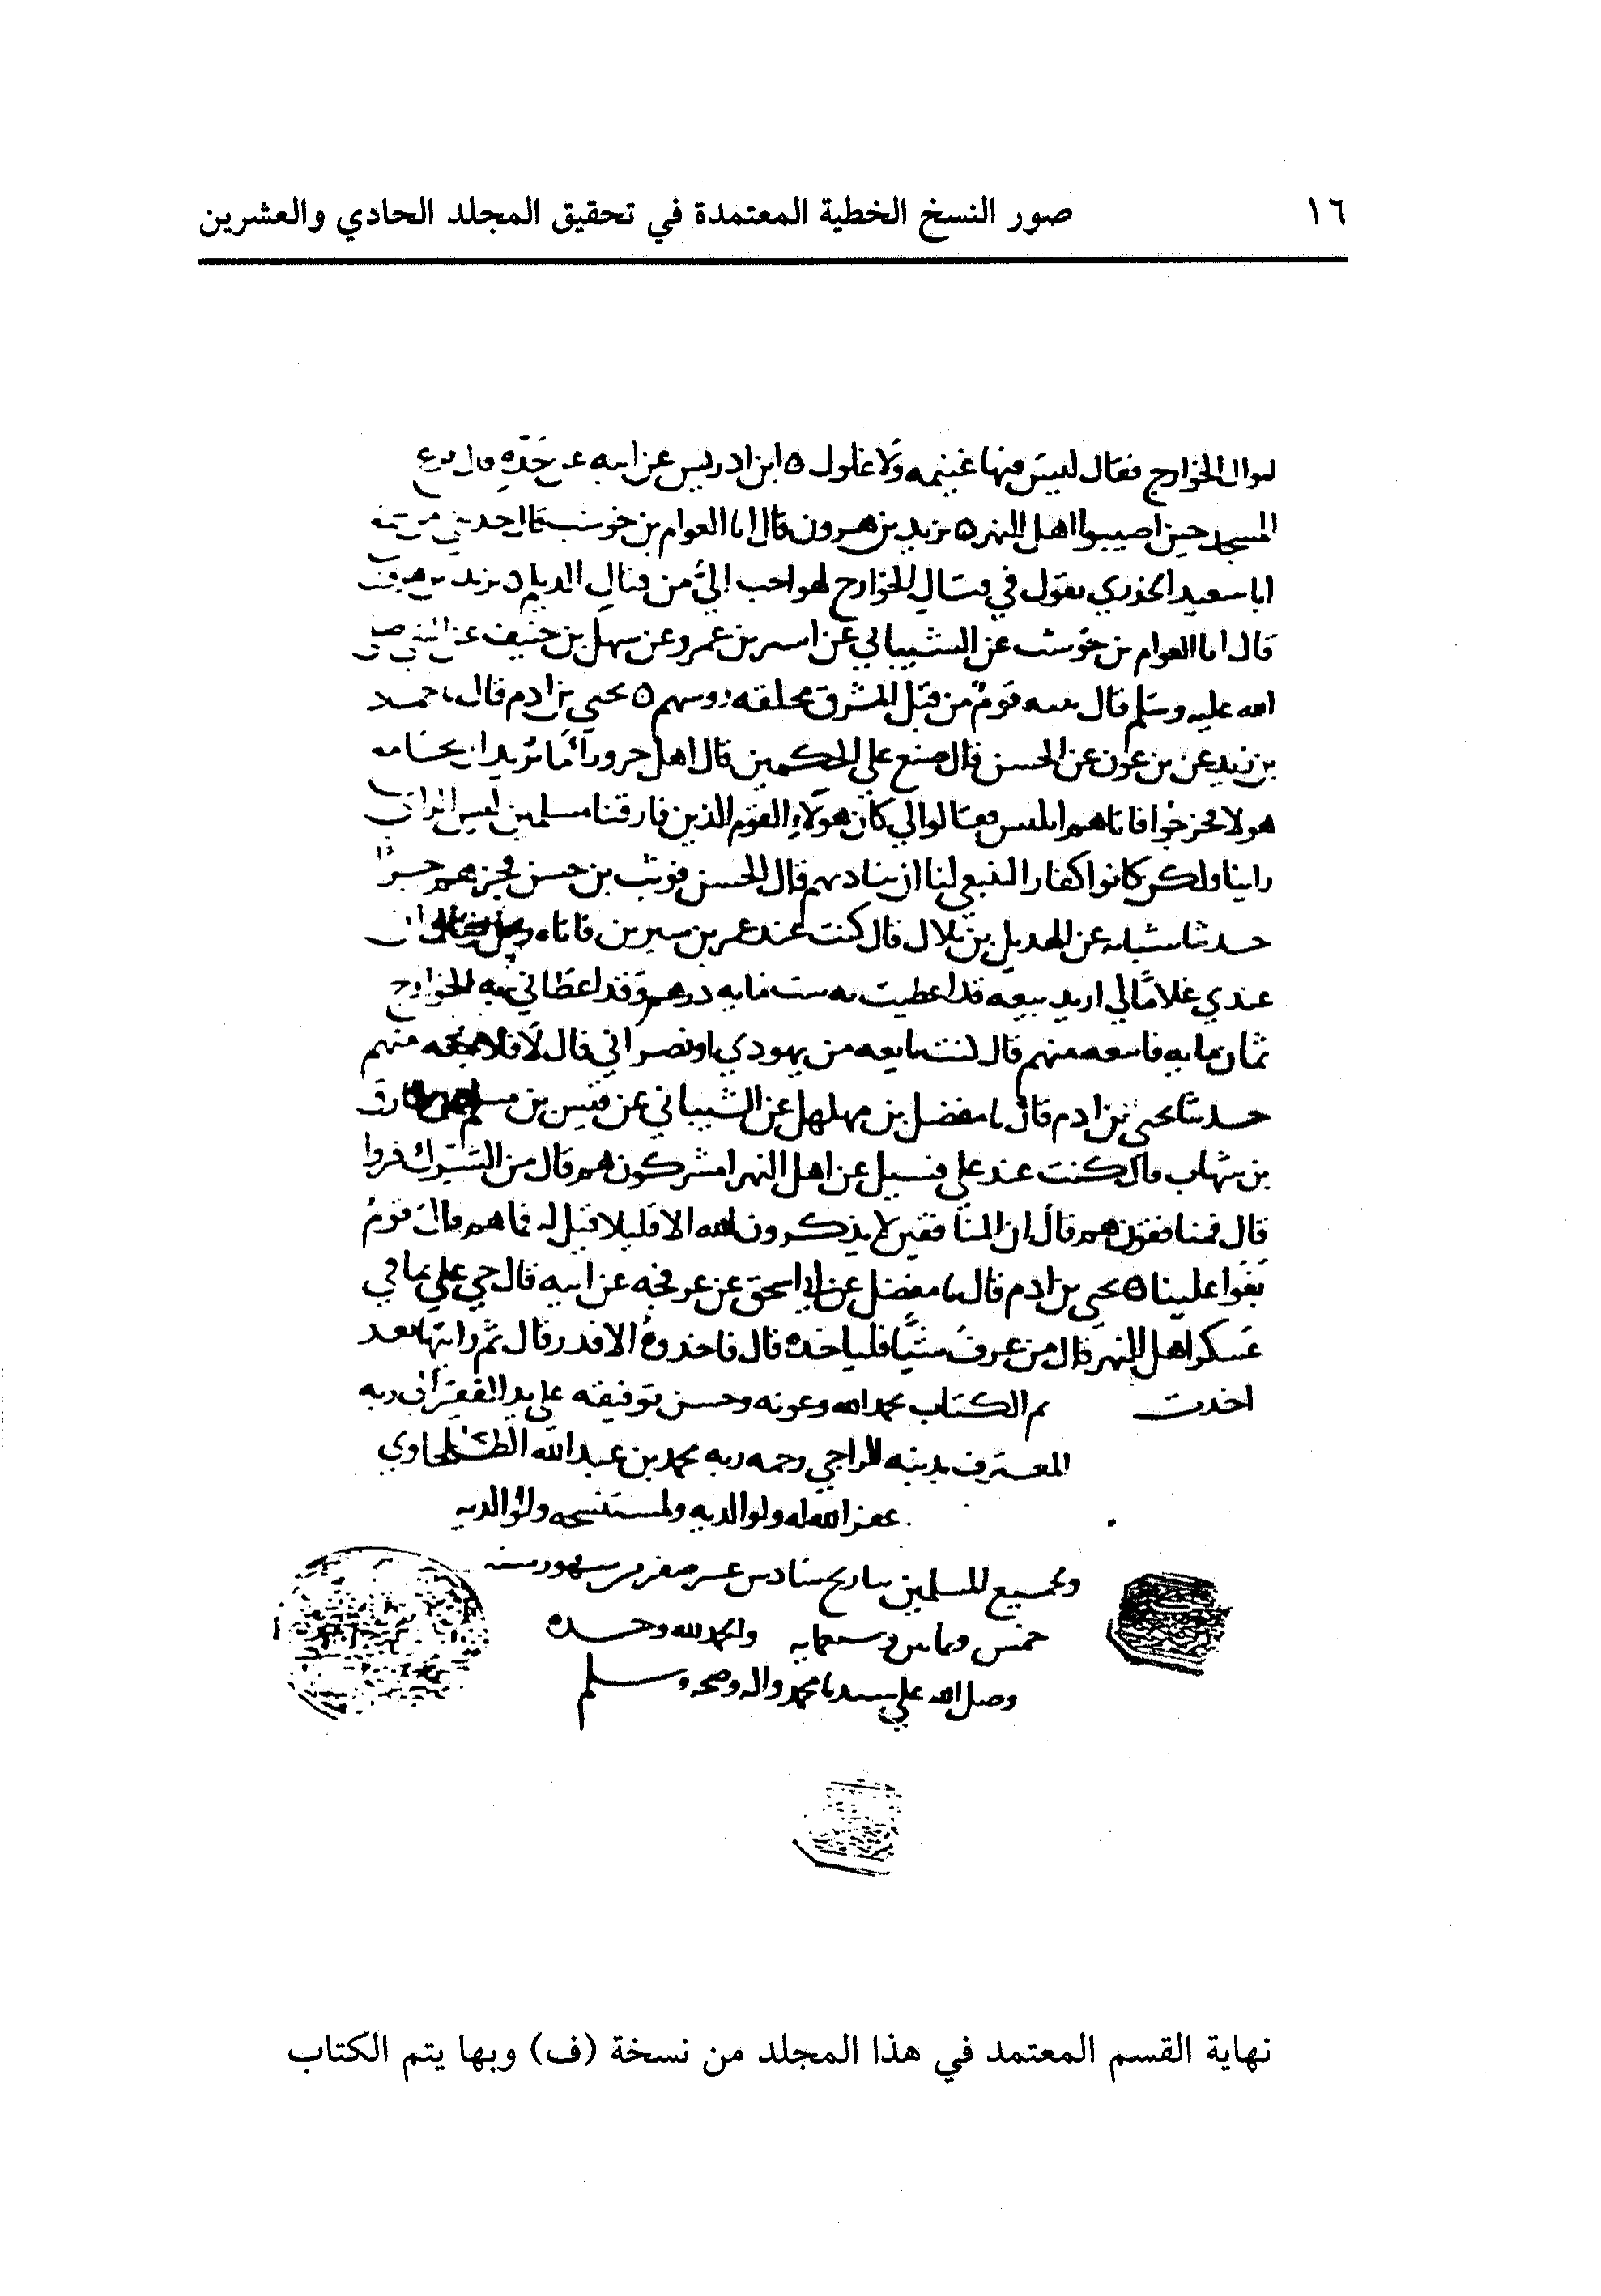 ١٦ صور النسخ الخطية المعتمدة في تحقيق المجلد الحادي والعشرين
اموال الخوارج فقال ليس فيها غنيمه ولا غلول ٥ ابن ادريس عن ابيه عن جده قال فزع
المسجد حين اصيبوا اهل النهر ٥ يزيد بن هرون قال انا العوام بن حوشب قال حدثني من سمع
ابا سعيد الخدري يقول في قتال الخوارج لهو احب الي من قتال الديلم ٥ يزيد بن هرون
قال انا العوام بن حوشب عن الشيباني عن اسير بن عمرو عن سهل بن حنيف عن النبي صلى
الله عليه وسلم قال يتيه قوم من قبل المشرق محلقه روسهم ٥ يحيى بن ادم قال نا حماد
بن زيد عن بن عون عن الحسن قال صنع علي الحكمين قال اهل حرورا ما تريد ان
هولا فخرجوا فاتاهم ابليس فقالوا لي كان هولاء القوم الذين فارقنا مسلمين لبيس الراي
راينا ولكن كانوا كفارا لينبغي لنا ان قال الحسن فوثب بن حسن
حدثنا شبابه عن الهذيل بن بلال قال كنت عند بن سيرين فاتاه رجل فقال ان
عندي غلاما لي اريد بيعه قد اعطيت به ست مايه درهم وقد اعطاني به الخوارج
ثمان مايه فابيعه منهم قال كنت بايعه من يهودي او نصراني قال لا قال فلا تبعه منهم
حدثنا يحيى بن ادم قال نا مفضل بن مهلهل عن الشيباني عن قيس بن مسلم عن طارق
بن شهاب قال كنت عند علي فسيل عن اهل النهر امشركون هم قال من الشرك فروا
قال فمنافقون هم قال ان المنافقين لا يذكرون الله الا قليلا قيل له فما هم قال قوم
بغوا علينا ٥ يحيى بن ادم قال نا مفضل عن ابي اسحق عن عرفجه عن ابيه قال جي علي بما في
عسكر اهل النهر قال من عرف شيا فلياخذه قال فاخذوه الا قدر قال ثم رايتها بعد
اخذت تم الكتاب بحمد الله وعونه وحسن توفيقه على يد الفقير الى ربه
المعترف بذنبه الراجي رحمه ربه محمد بن عبد الله
غفر الله له ولوالديه ولمستنسخه ولوالديه
ولجميع المسلمين بتاريخ سادس عشر صفر من شهور سنه
خمس وثمانين وسبعمايه والحمد لله وحده
وصلى الله على سيدنا محمد واله وصحبه وسلم
نهاية القسم المعتمد في هذا المجلد من نسخة (ف) وبها يتم الكتاب